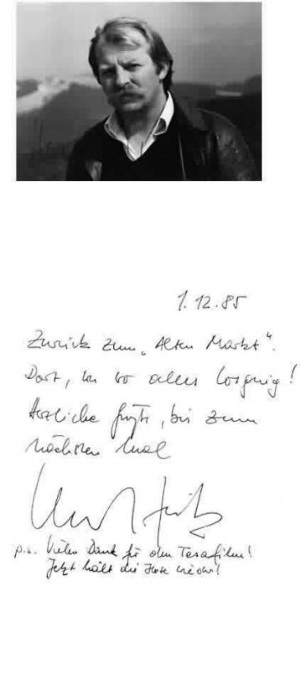 1.12.85
Zurück zum „Alten Markt“.
Dort, wo alles losging!
Herzliche Grüße, bis zum
nächsten Mal
p.s. Vielen Dank für den Tesafilm!
Jetzt hält die Hose wieder!